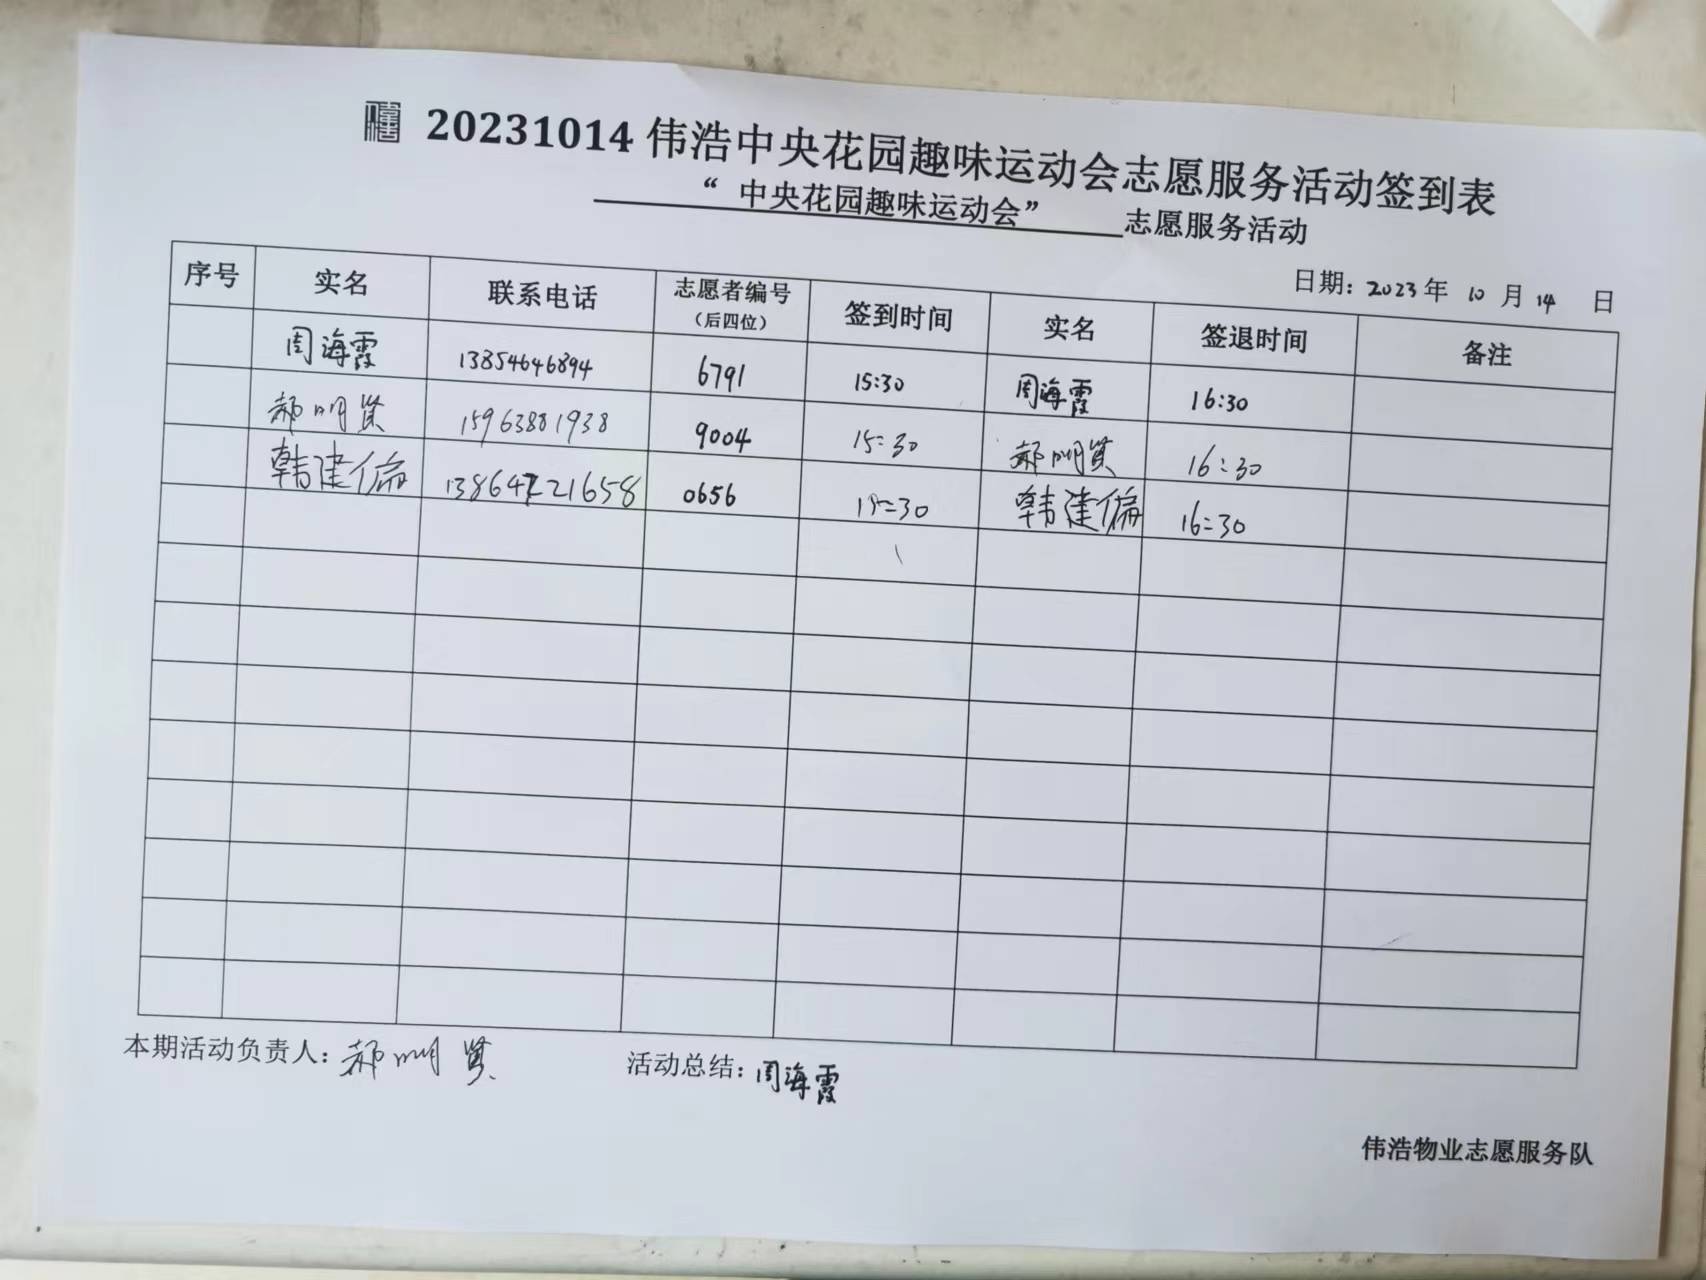 20231014 伟浩中央花园趣味运动会志愿服务活动签到表
“ 中央花园趣味运动会” 志愿服务活动
日期: 2023 年 10 月 14 日
序号 实名 联系电话 志愿者编号 (后四位) 签到时间 实名 签退时间 备注
周海霞 13854646894 6791 15:30 周海霞 16:30
郝明贤 15963881938 9004 15:30 郝明贤 16:30
韩建偏 0656 15:30 韩建偏 16:30
本期活动负责人: 郝明贤 活动总结: 周海霞
伟浩物业志愿服务队